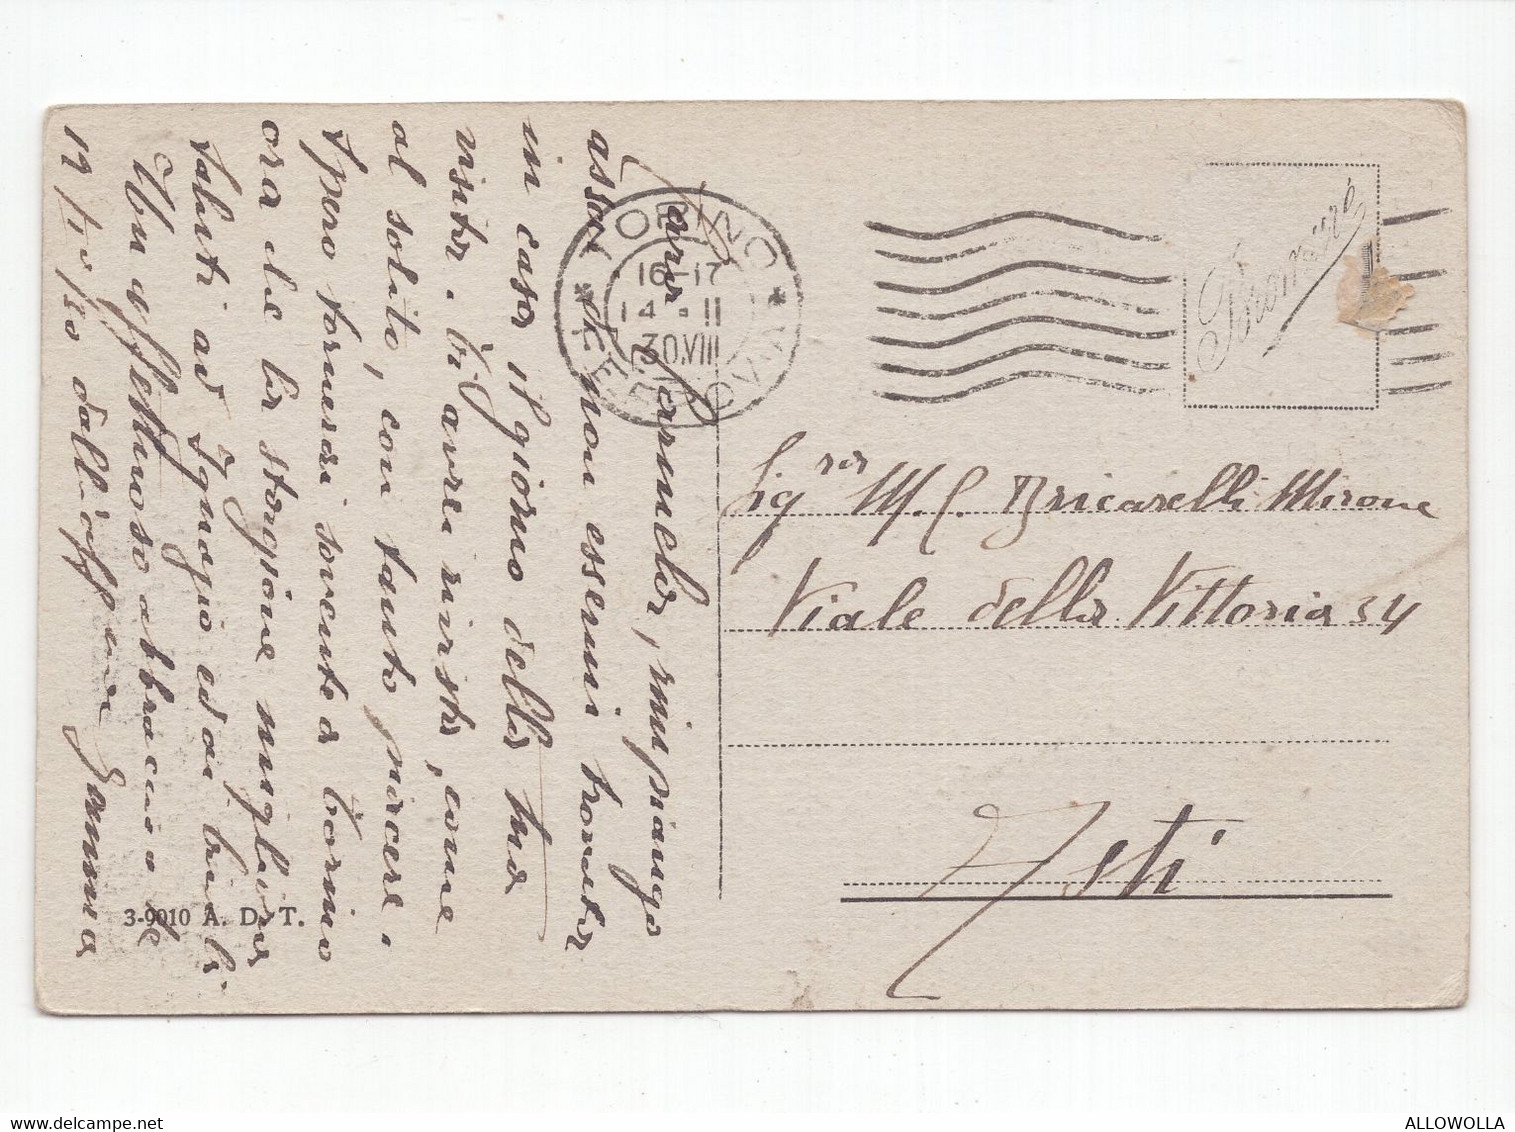 Cara Carmela, rimpiango
assai di non essermi trovata
in casa il giorno della tua
visita. Ti avrei rivista, come
al solito, con tanto piacere.
Spero tornerai sovente a Torino
ora che la stagione migliora
Saluti ad Ignazio ed ai bimbi.
Un affettuoso abbraccio
19/ /30 dall'aff.ma Gemma
3-9010 A. D. T.
TORINO
16-17
14-II
30.VIII
FERROVIA
Bromuré
Sig.ra M. C. Bricarelli Mirone
Viale della Vittoria 34
Asti
ALLOWOLLA